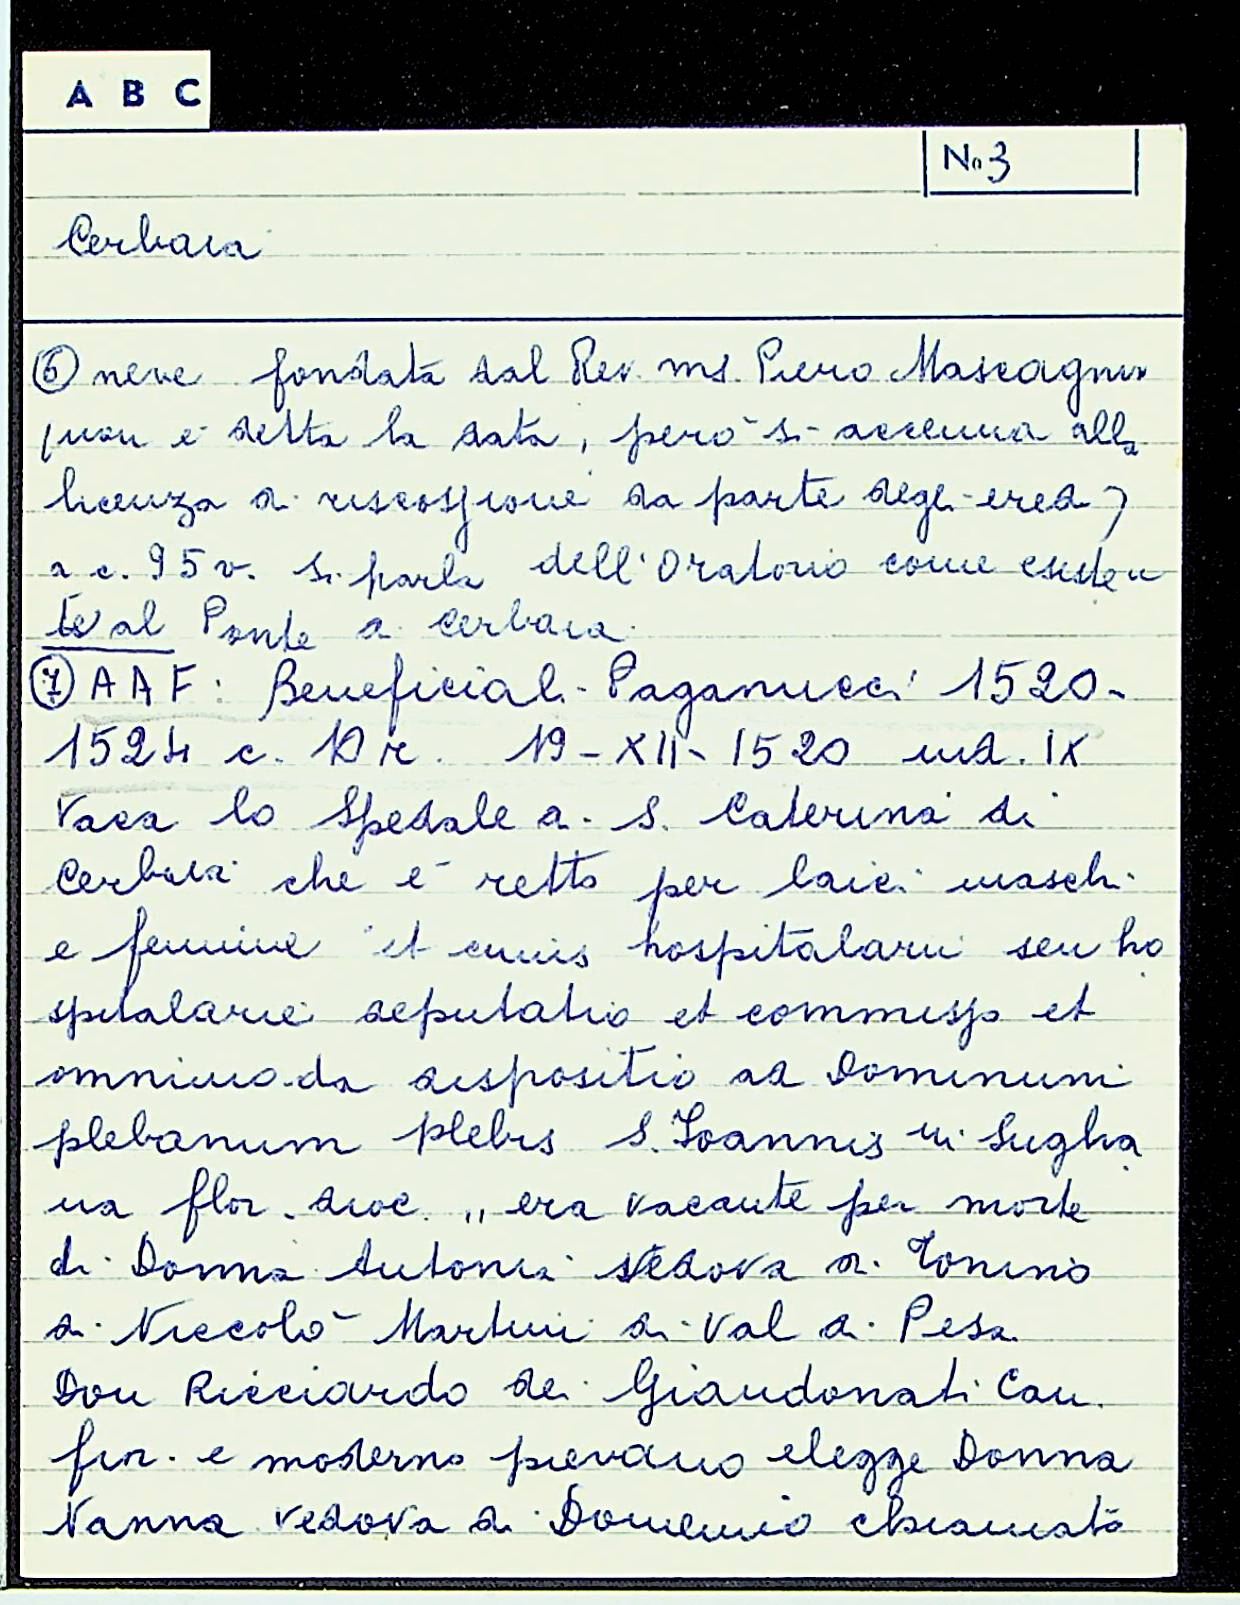 A B C
No 3
Cerbaia
⑥ neve fondata dal Rev. ms. Piero Mascagni
(non è detta la data, però si accenna alla
licenza di riscossione da parte degli eredi)
a c. 95 v. si parla dell'Oratorio come esisten
te al Ponte a Cerbaia.
⑦ AAF: Beneficiali Paganucci 1520-
1524 c. 10 r. 19-XII-1520 ind. IX
Vaca lo Spedale di S. Caterina di
Cerbaia che è retto per laici maschi
e femine "et cuius hospitalarii seu ho
spitalarie deputatio et commissio et
omnimoda dispositio ad Dominum
plebanum plebis S. Ioannis in Suglia
na flor. dioc." era vacante per morte
di Donna Antonia vedova di Tonino
di Niccolò Martini di Val di Pesa.
Don Ricciardo dei Giandonati Can.
fior. e moderno pievano elegge Donna
Nanna vedova di Domenico chiamato